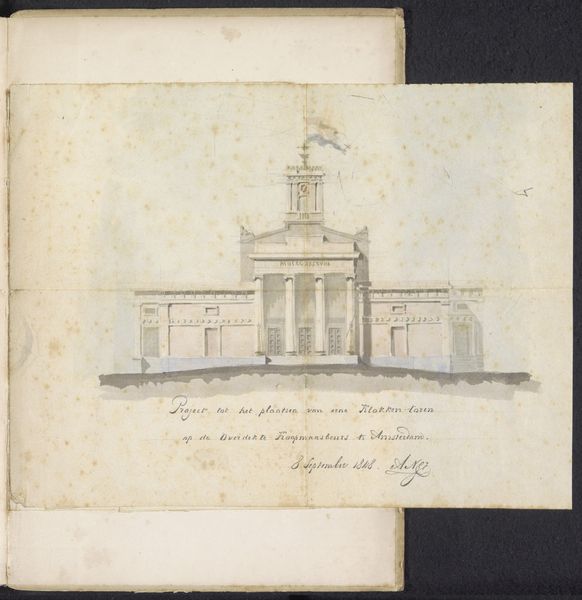 Project tot het plaatsen van eene Klokken-toren
op de Overdekte Koopmansbeurs te Amsterdam.
8 September 1848.